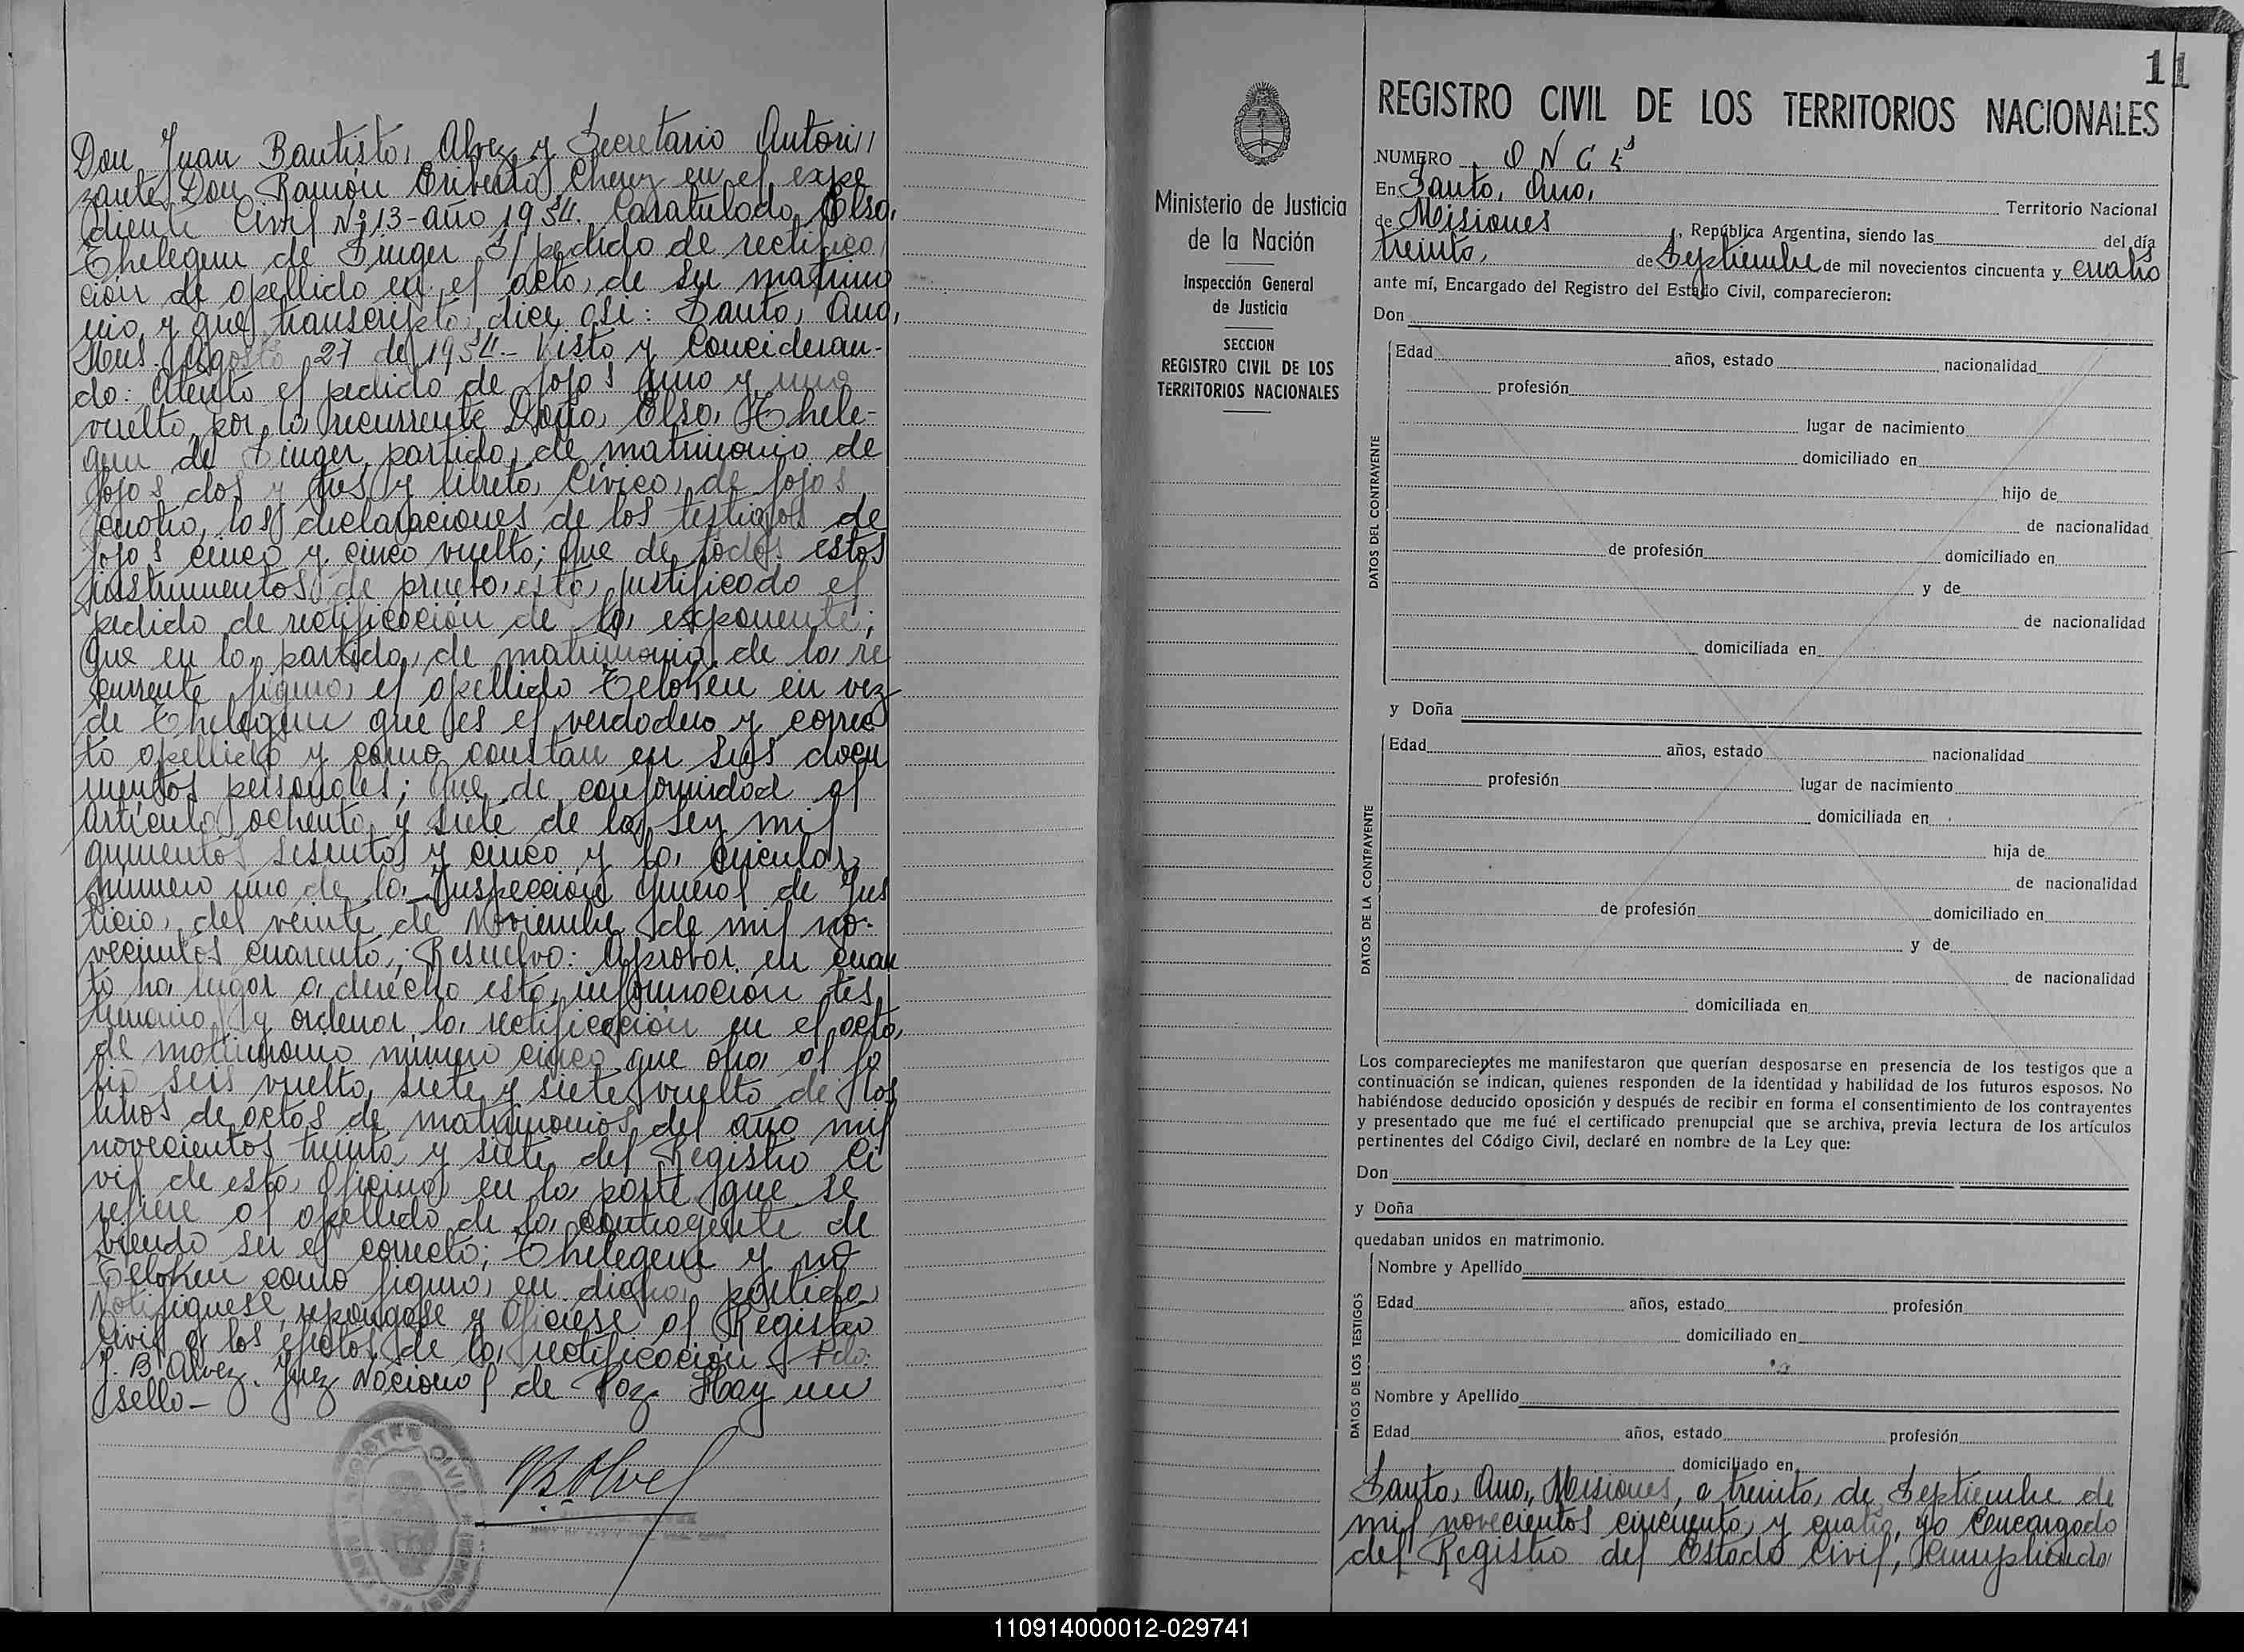 Don Juan Bautista Alvez y Secretario Autori,,
zante Don Ramón Eriberto Chenz en el expe
diente Civil Nº 13-año 1954. Caratulado Elsa
Thelegem de Singer S/ pedido de rectifica
ción de apellido en el acta de su matrimo
nio y que transcripta dice asi: Santa Ana,
Mns. Agosto 27 de 1954.- Visto y Concideran-
do: Atento el pedido de fojas uno y uno
vuelto por la recurrente Doña Elsa Thele-
gem de Singer, partida de matrimonio de
fojas dos y tres y libreta Cívica de fojas
cuatro, las declaraciones de los testigos de
fojas cinco y cinco vuelto; Que de todos estos
instrumentos de prueba esta justificado el
pedido de rectificación de la exponente;
Que en la partida de matrimonio de la re
currente figura el apellido Teloken en vez
de Thelegem que es el verdadero y correc
to apellido y como constan en sus docu
mentos personales; Que de conformidad al
Artículo ochenta y siete de la Ley mil
quinientos sesenta y cinco y la Circular
número uno de la Inspección General de Jus
ticia del veinte de Noviembre de mil no-
vecientos cuarenta; Resuelvo: Aprobar en cuan
to ha lugar a derecho esta información tes
timonio y ordenar la rectificación en el acta
de matrimonio número cinco que obra al fo
lio seis vuelto, siete y siete vuelto de los
libros de actas de matrimonios del año mil
novecientos treinta y siete del Registro Ci
vil de esta Oficina en la parte que se
refiere al apellido de la contrayente de
biendo ser el correcto; Thelegem y no
Teloken como figura en dicha partida
Notifiquese, repongase y Oficiese al Registro
Civil a los efectos de la rectificación Fdo:
J. B. Alvez. Juez Nacional de Paz. Hay un
sello-
REGISTRO CIVIL
11
REGISTRO CIVIL DE LOS TERRITORIOS NACIONALES
Ministerio de Justicia
de la Nación
Inspección General
de Justicia
SECCION
REGISTRO CIVIL DE LOS
TERRITORIOS NACIONALES
NUMERO ONCE
En Santa Ana, Territorio Nacional
de Misiones, República Argentina, siendo las del día
treinta de Septiembre de mil novecientos cincuenta y cuatro
ante mí, Encargado del Registro del Estado Civil, comparecieron:
Don
DATOS DEL CONTRAYENTE
Edad años, estado nacionalidad
profesión
lugar de nacimiento
domiciliado en
hijo de
de nacionalidad
de profesión domiciliado en
y de
de nacionalidad
domiciliada en
y Doña
DATOS DE LA CONTRAYENTE
Edad años, estado nacionalidad
profesión lugar de nacimiento
domiciliada en
hija de
de nacionalidad
de profesión domiciliado en
y de
de nacionalidad
domiciliada en
Los comparecientes me manifestaron que querían desposarse en presencia de los testigos que a
continuación se indican, quienes responden de la identidad y habilidad de los futuros esposos. No
habiéndose deducido oposición y después de recibir en forma el consentimiento de los contrayentes
y presentado que me fué el certificado prenupcial que se archiva, previa lectura de los artículos
pertinentes del Código Civil, declaré en nombre de la Ley que:
Don
y Doña
quedaban unidos en matrimonio.
DATOS DE LOS TESTIGOS
Nombre y Apellido
Edad años, estado profesión
domiciliado en
Nombre y Apellido
Edad años, estado profesión
domiciliado en
Santa Ana, Misiones, a treinta de Septiembre de
mil novecientos cincuenta y cuatro, yo Encargado
del Registro del Estado Civil, Cumpliendo
110914000012-029741